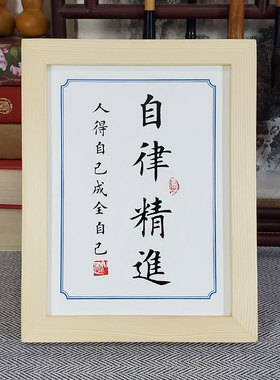 自律精進
人得自己成全自己